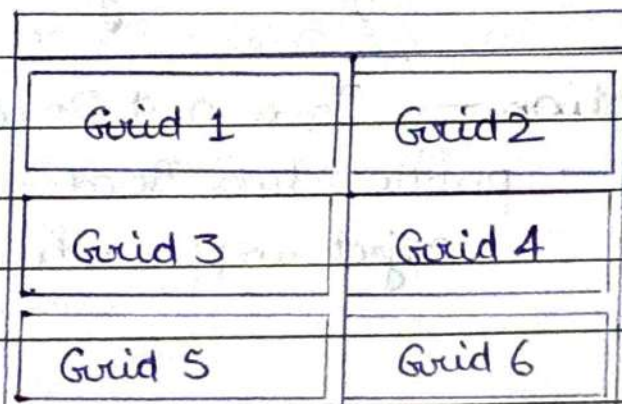 Grid 1 Grid 2
Grid 3 Grid 4
Grid 5 Grid 6